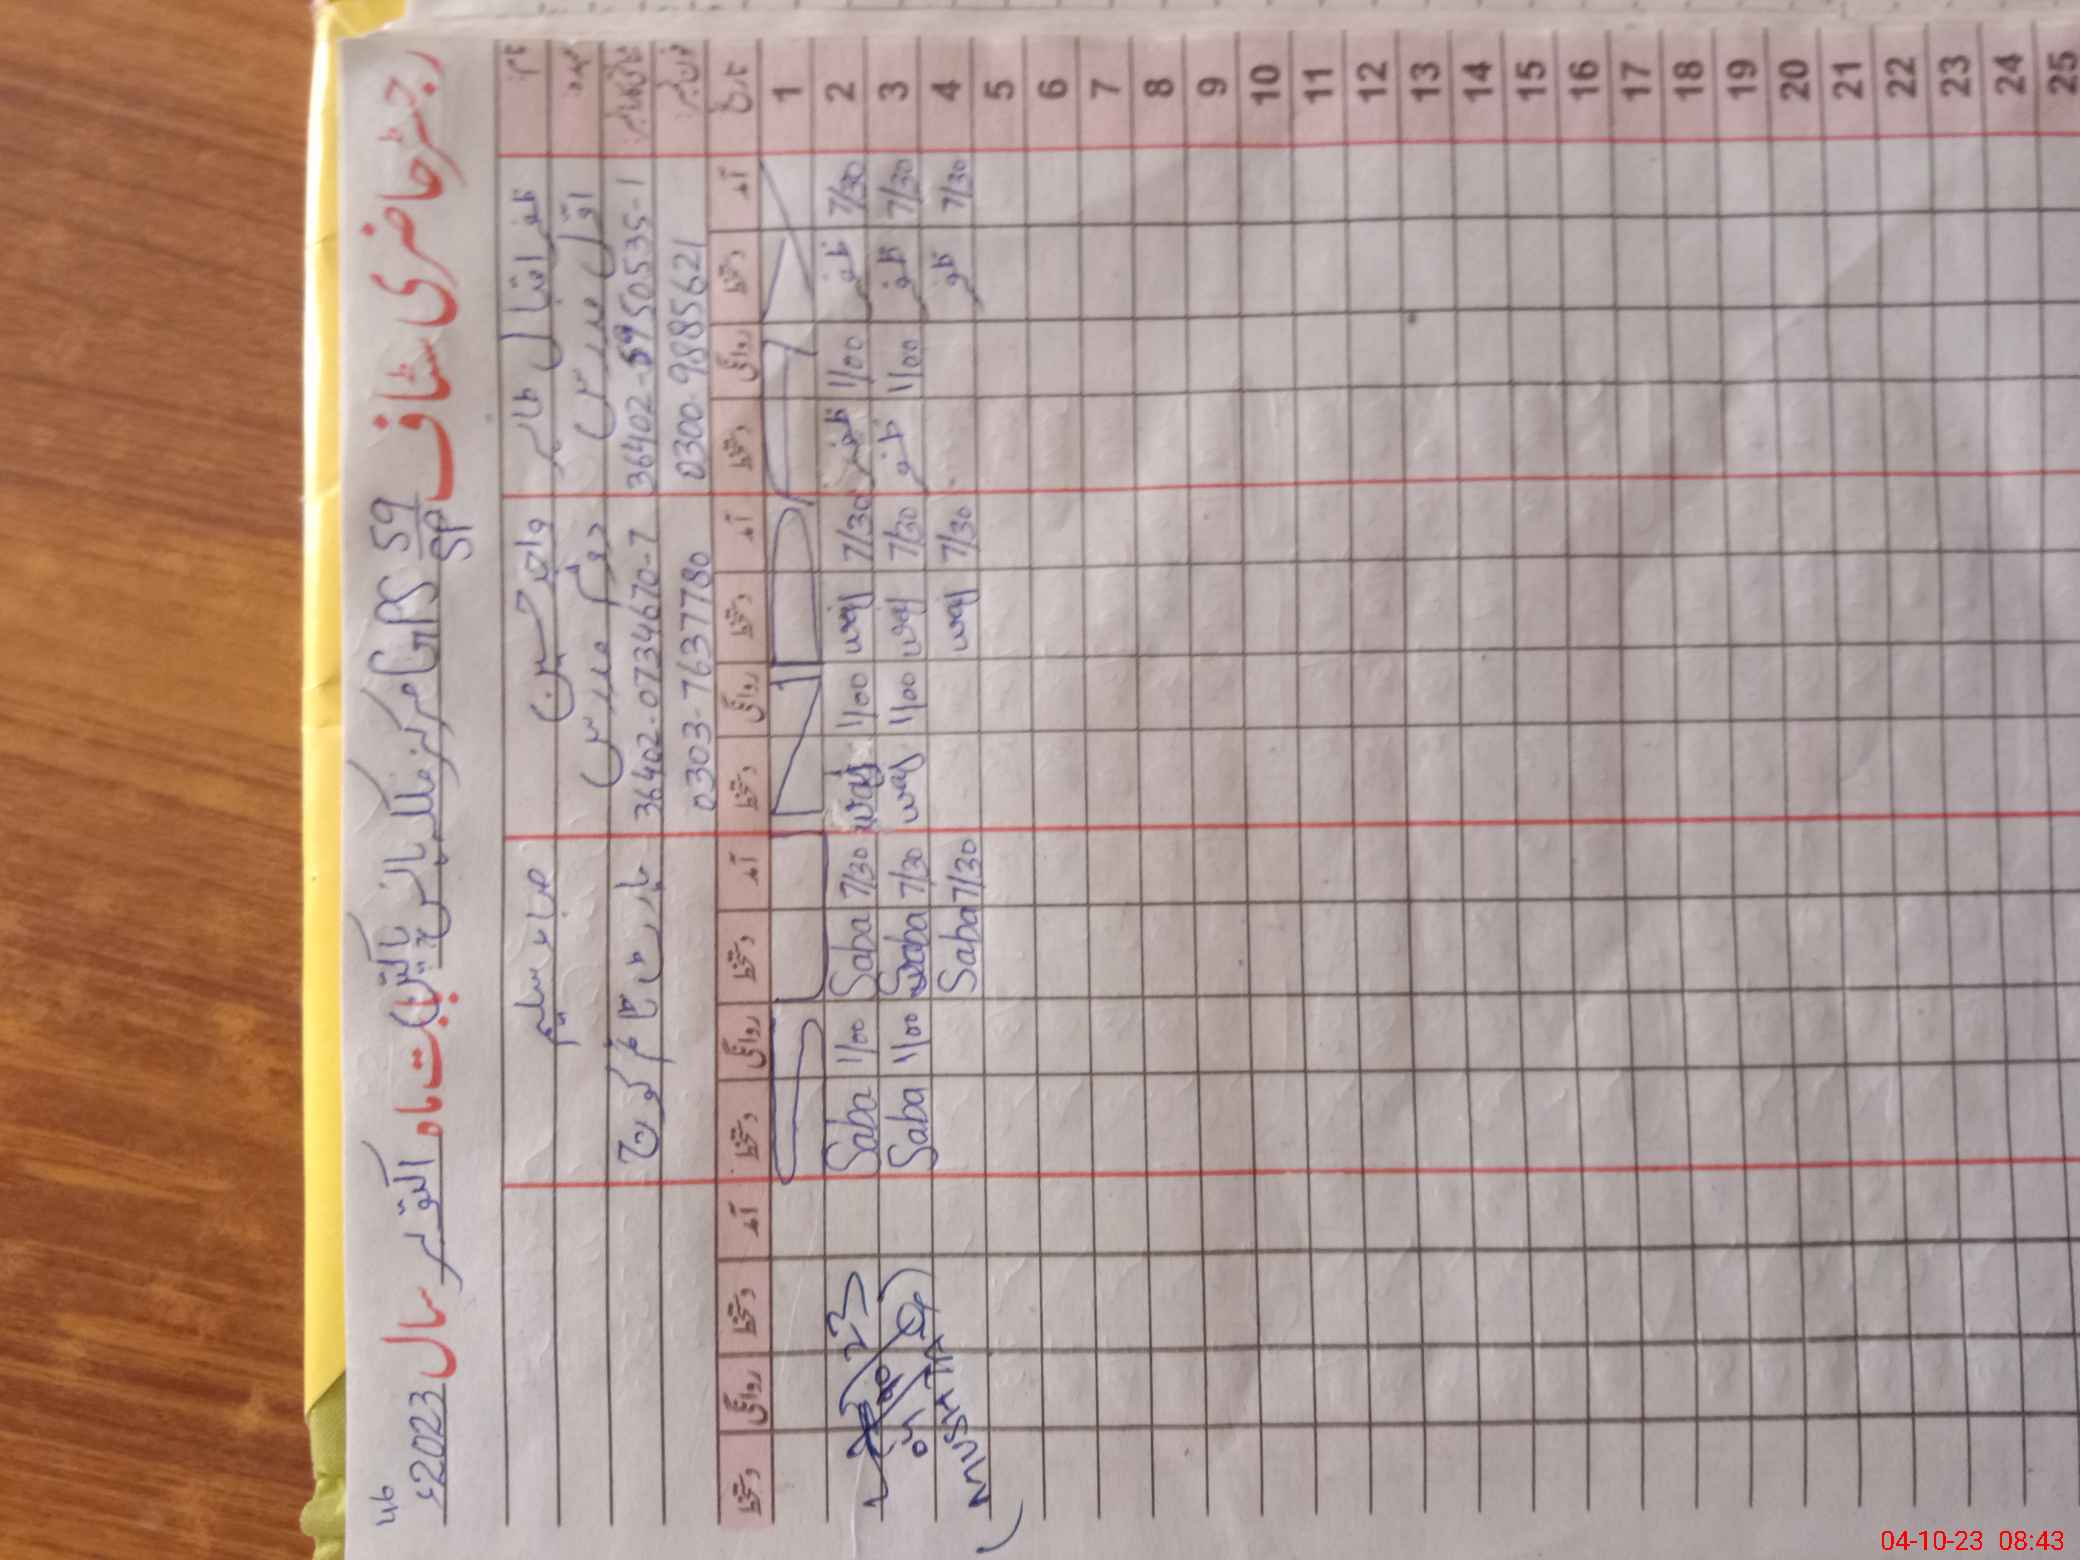 رجسٹر حاضری سٹاف GPS 59/SP مرکز ملکہ ہانس پاکپتن بابت ماہ اکتوبر سال 2023ء
نام ظفر اقبال طاہر واجد حسین صباء سلیم
عہدہ اوّل مدرس دوئم مدرس
شناختی کارڈ نمبر 36402-5950535-1 36402-0734670-7
فون نمبر 0300-9885621 0303-7637780
تاریخ آمد دستخط روانگی دستخط آمد دستخط روانگی دستخط آمد دستخط روانگی دستخط آمد دستخط روانگی دستخط
1
2 7/30 ظفر 1/00 ظفر 7/30 waj 1/00 waj 7/30 Saba 1/00 Saba
3 7/30 ظفر 1/00 ظفر 7/30 waj 1/00 waj 7/30 Saba 1/00 Saba
4 7/30 ظفر 7/30 waj 7/30 Saba
5
6
7
8
9
10
11
12
13
14
15
16
17
18
19
20
21
22
23
24
25
04-10-23 08:43